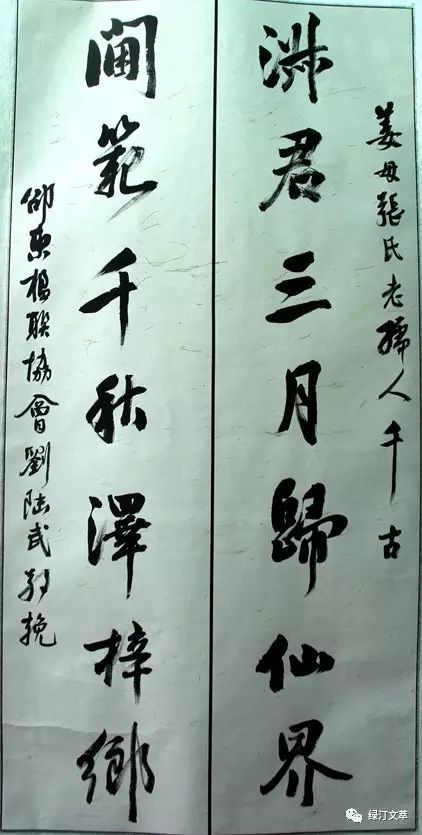 姜母張氏老孺人千古
淑君三月歸仙界
閫範千秋澤梓鄉
邵東楹聯協會劉陸武敬挽
绿汀文萃